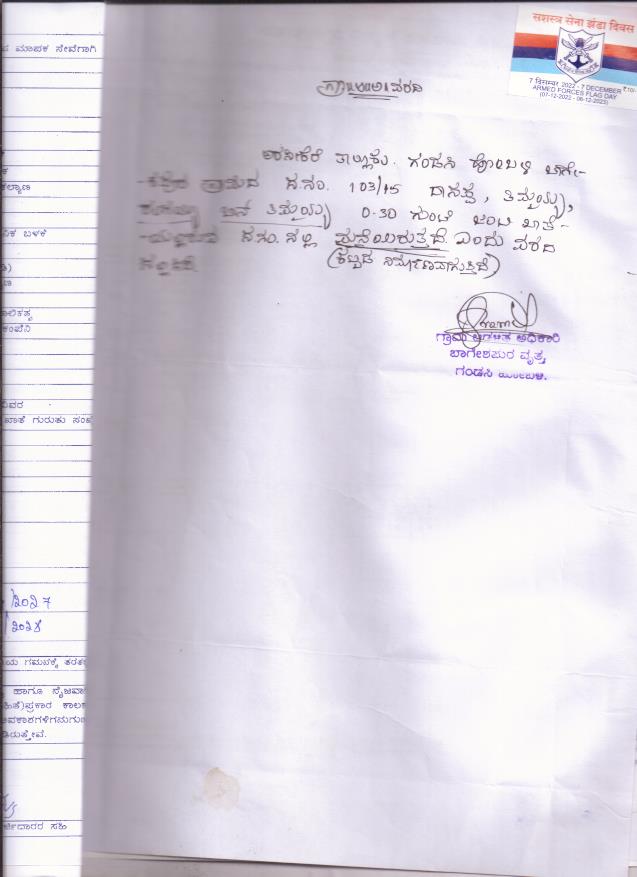 ಪ ಮಾಪಕ ಸೇವೆಗಾಗಿ
ಕಲ್ಯಾಣ
ನಿಕ ಬಳಕೆ
ಕಂಪೆನಿ
ವಿವರ
ಖಾತೆ ಗುರುತು ಸಂಖ
/೨೦೨೩
/೨೦೨೩
ಯ ಗಮನಕ್ಕೆ ತರತ
ಹಾಗೂ ನೈಜವಾ
ಹಿತೆ)ಪ್ರಕಾರ ಕಾಲಕ
ಅವಕಾಶಗಳಿಗನುಗುಣ
ಡಿರುತ್ತೇವೆ.
ರ್ಜಿದಾರರ ಸಹಿ
सशस्त्र सेना झंडा दिवस
7 दिसम्बर 2022 - 7 DECEMBER ₹10/-
ARMED FORCES FLAG DAY
(07-12-2022 - 06-12-2023)
ವರದಿ
ಅರಸೀಕೆರೆ ತಾಲ್ಲೂಕು. ಗಂಡಸಿ ಹೋಬಳಿ ಬಾಗೇ-
ಗ್ರಾಮದ ಸ.ನಂ. 103/15 ದಾಸಪ್ಪ, ತಿಮ್ಮಯ್ಯ,
ಬಿನ್ ತಿಮ್ಮಯ್ಯ 0-30 ಗುಂಟೆ ಜಂಟಿ ಖಾತೆ-
ಸ.ನಂ. ನಲ್ಲಿ ಮನೆಯಿರುತ್ತದೆ. ಎಂದು ವರದಿ
(ಕಟ್ಟಡ ನಿರ್ಮಾಣವಾಗುತ್ತಿದೆ)
ಗ್ರಾಮ ಆಡಳಿತ ಅಧಿಕಾರಿ
ಬಾಗೇಶಪುರ ವೃತ್ತ,
ಗಂಡಸಿ ಹೋಬಳಿ.